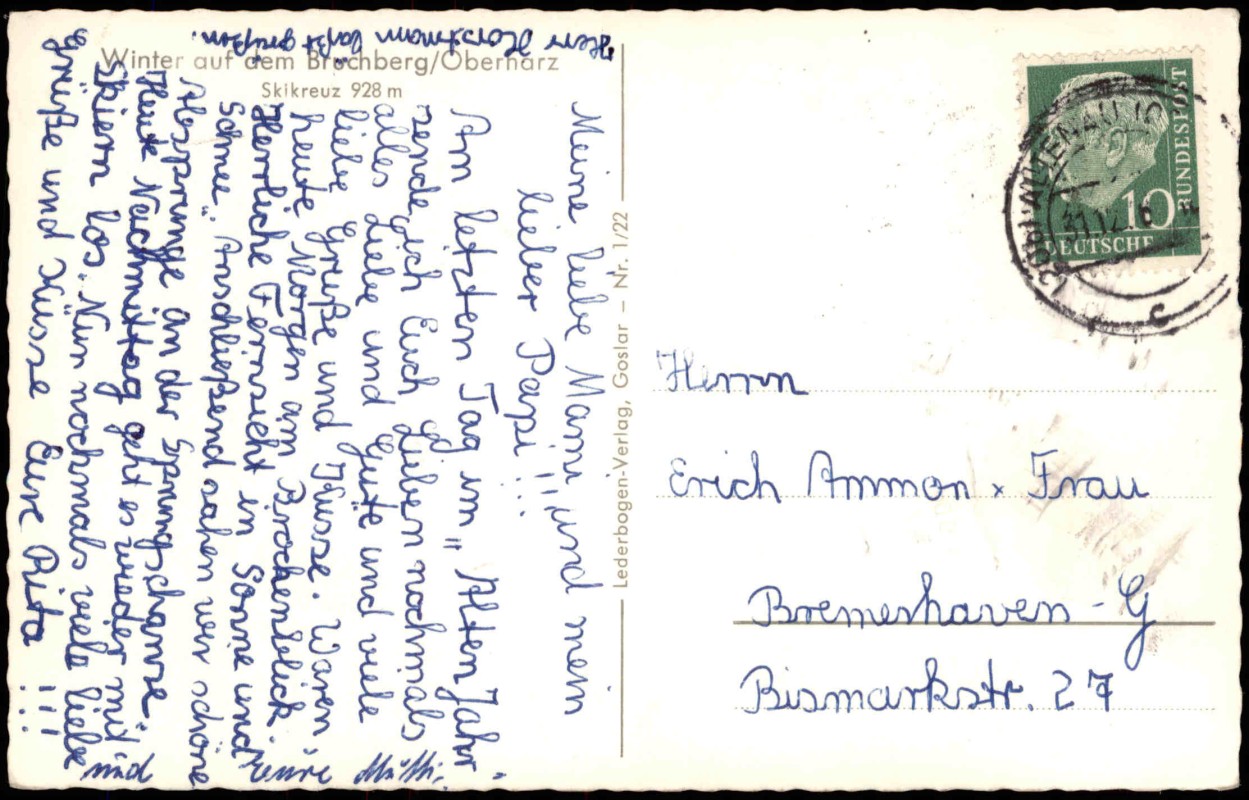 Winter auf dem Bruchberg/Oberharz
Skikreuz 928 m
Herr Horstmann läßt grüßen.
Meine liebe Mami und mein
lieber Papi!!!
Am letzten Tag im "Alten Jahr"
sende ich Euch Lieben nochmals
alles Liebe und Gute und viele
liebe Grüße und Küsse. Waren
heute Morgen am Brockenblick.
Herrliche Fernsicht in Sonne und
Schnee. Anschließend sahen wir schöne
Absprünge an der Sprungschanze.
Heute Nachmittag geht es wieder mit
Skiern los. Nun nochmals viele liebe
Grüße und Küsse Eure Rita !!!
und eure Mutti.
Lederbogen-Verlag, Goslar – Nr. 1/22
DEUTSCHE
BUNDESPOST
10
ALTENAU
31.12.
c
Herrn
Erich Ammon x Frau
Bremerhaven-G
Bismarkstr. 27